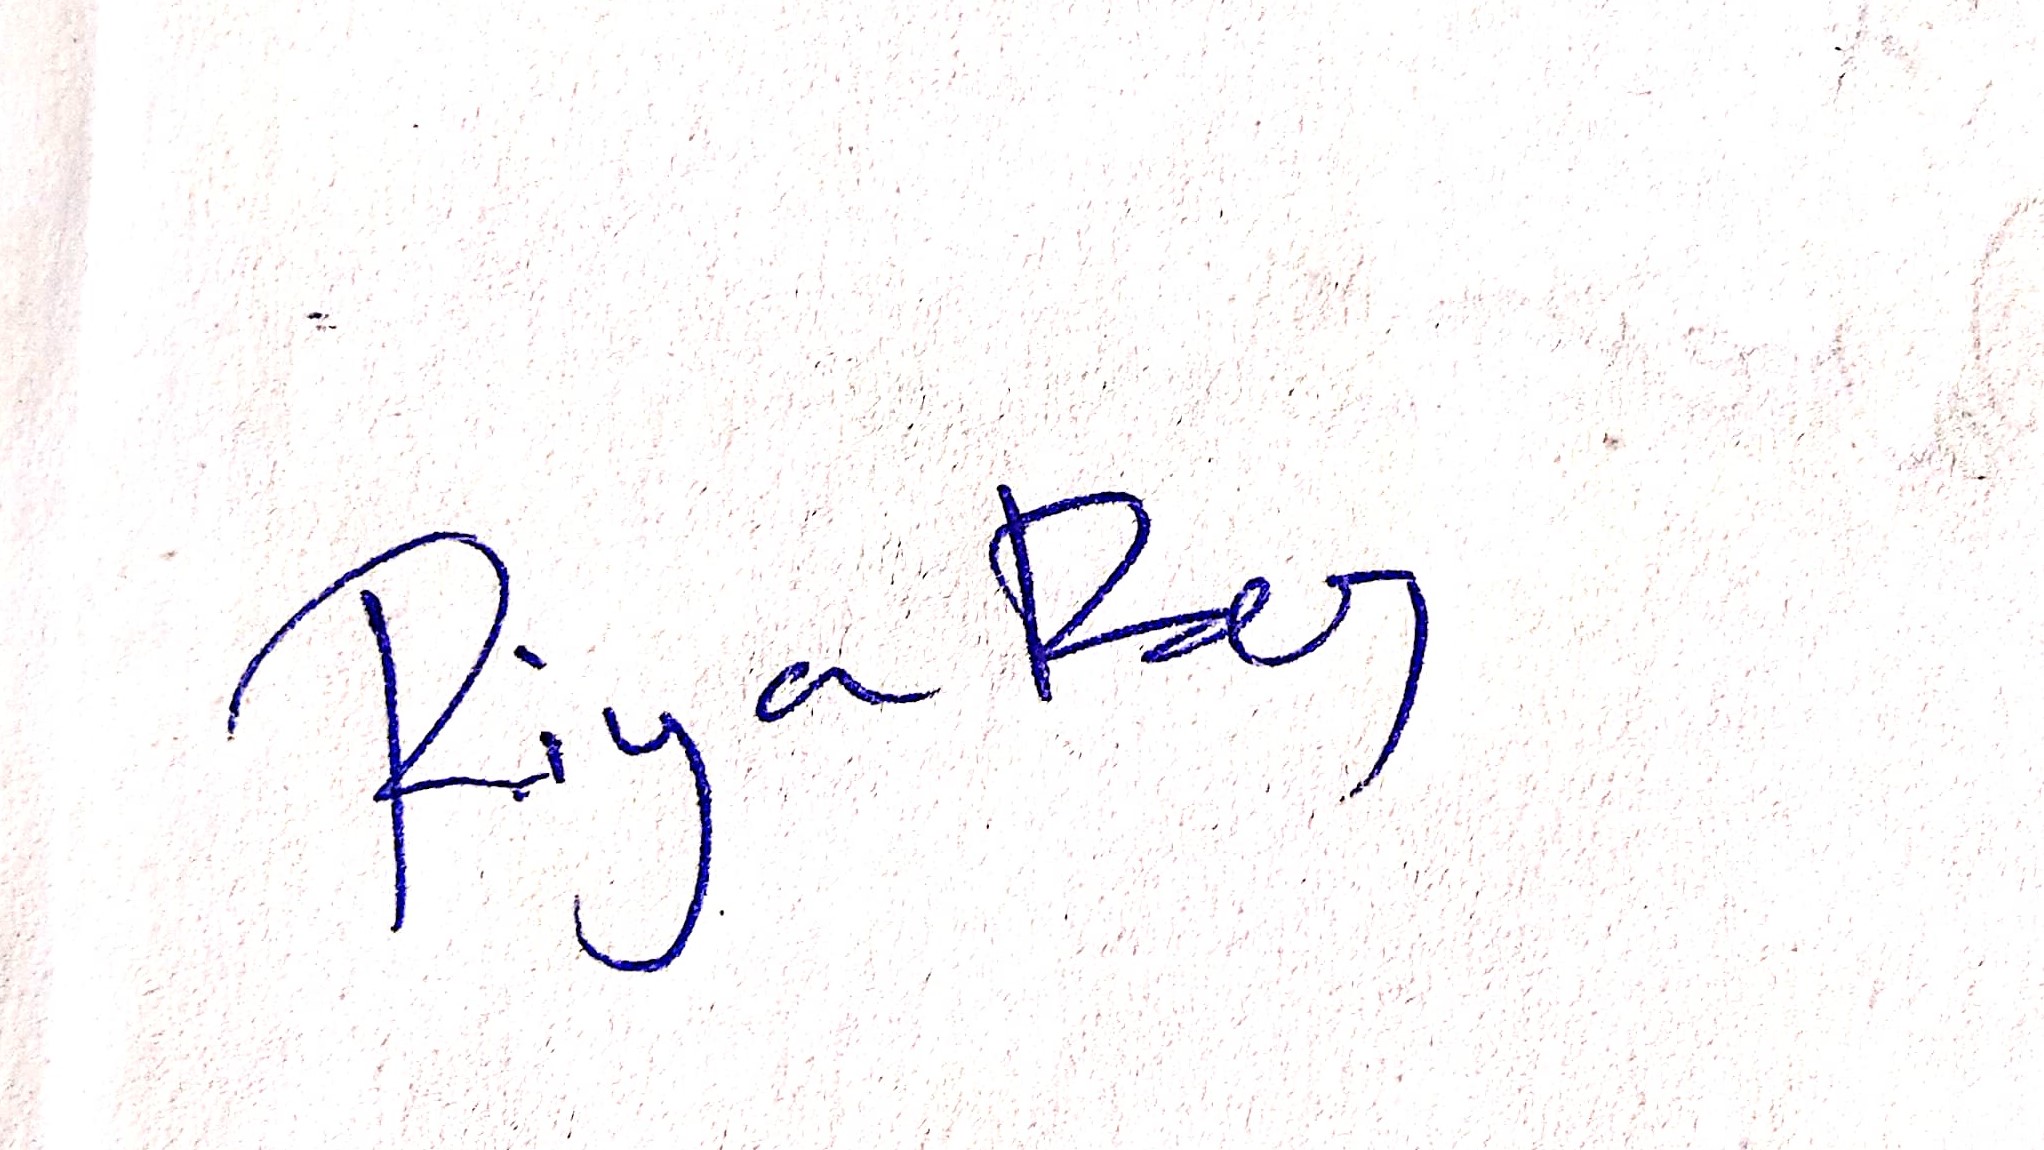 Riya Rey